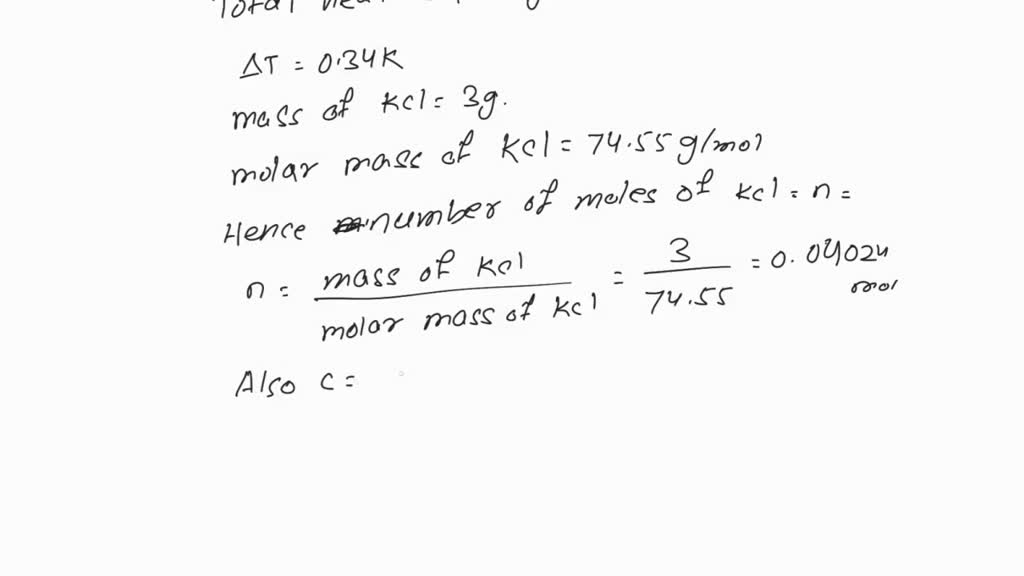 Total
ΔT = 0.34K
mass of kcl = 3g.
molar mass of kcl = 74.55 g/mol
Hence number of moles of kcl = n =
n = mass of kcl / molar mass of kcl = 3 / 74.55 = 0.04024
mol
Also c =